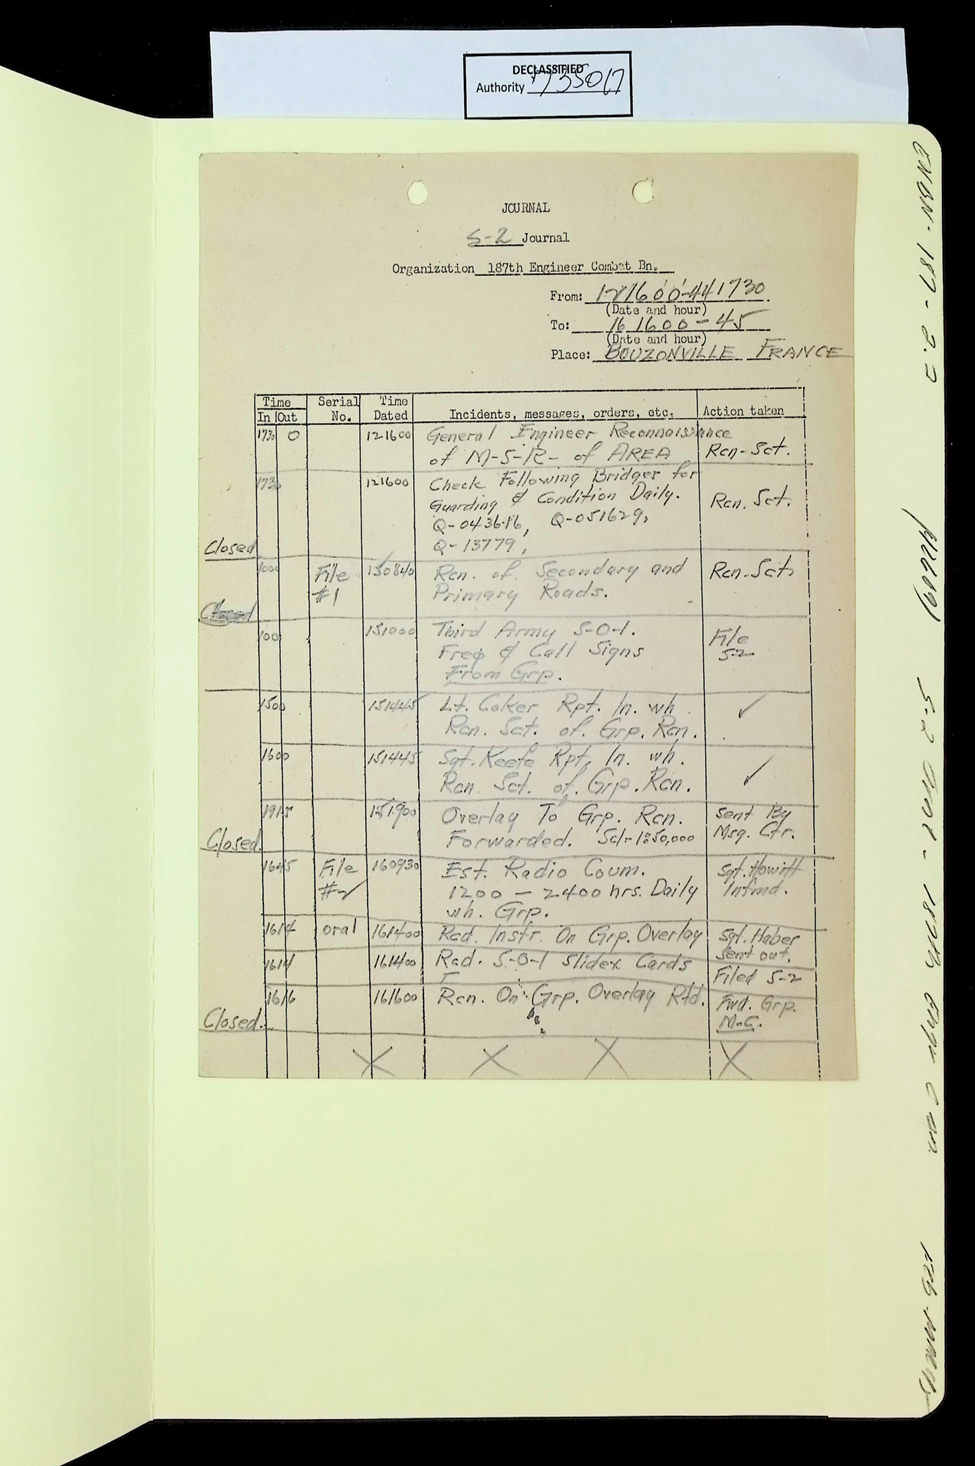 DECLASSIFIED
Authority 735017
JOURNAL
S-2 Journal
Organization 187th Engineer Combat Bn.
From: 121600-44 1730
(Date and hour)
To: 16 1600-45
(Date and hour)
Place: BOUZONVILLE FRANCE
Time Serial Time
In Out No. Dated Incidents, messages, orders, etc. Action taken
1730 0 121600 General Engineer Reconnaissance
of M-S-R- of AREA Rcn-Sct.
1730 121600 Check Following Bridges for
Guarding & Condition Daily. Rcn. Sct.
Q-043616, Q-051629,
Q-13779,
Closed
1000 File 150840 Rcn. of Secondary and Rcn-Sct.
#1 Primary Roads.
Closed
100 151000 Third Army S-O-I. File
Freq & Call Signs S-2
From Grp.
1500 151445 Lt. Coker Rpt. In. wh ✓
Rcn. Sct. of. Grp. Rcn.
1600 151445 Sgt. Keefe Rpt. In. wh.
Rcn. Sct. of. Grp. Rcn. ✓
1915 151900 Overlay To Grp. Rcn. Sent By
Closed Forwarded. Scl-1:50,000 Msg. Ctr.
1645 File 160930 Est. Radio Coum. Sgt. Howitt
#2 1200 - 2400 hrs. Daily Infmd.
wh. Grp.
1614 oral 161400 Rcd. Instr. On Grp. Overlay Sgt. Haber
Sent out.
1614 161400 Rcd. S-O-I Slidex Cards Filed S-2
1616 161600 Rcn. On Grp. Overlay Rtd. Fwd. Grp.
Closed. M.C.
X X X X
ENBN-187-2.2
S-2